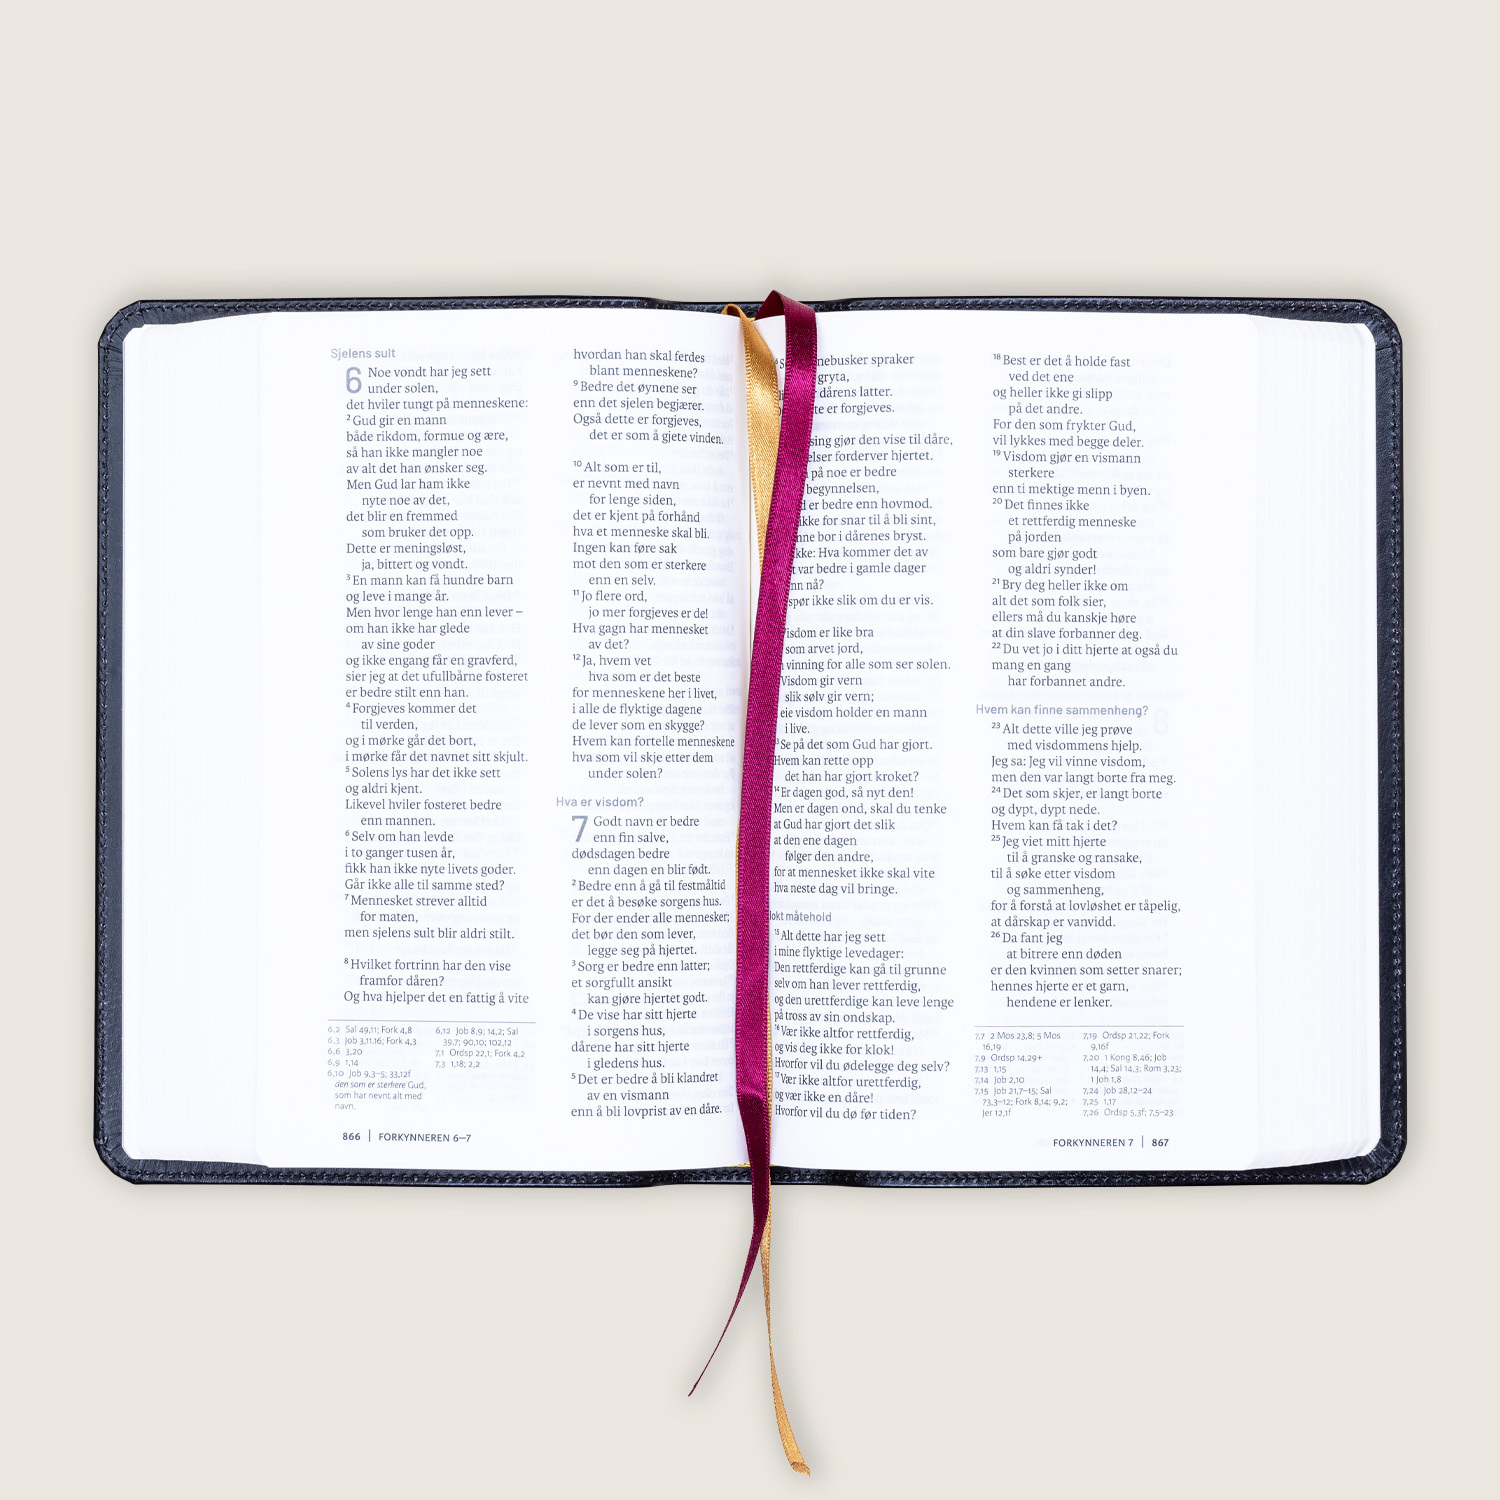 Sjelens sult
6 Noe vondt har jeg sett
under solen,
det hviler tungt på menneskene:
2 Gud gir en mann
både rikdom, formue og ære,
så han ikke mangler noe
av alt det han ønsker seg.
Men Gud lar ham ikke
nyte noe av det,
det blir en fremmed
som bruker det opp.
Dette er meningsløst,
ja, bittert og vondt.
3 En mann kan få hundre barn
og leve i mange år.
Men hvor lenge han enn lever –
om han ikke har glede
av sine goder
og ikke engang får en gravferd,
sier jeg at det ufullbårne fosteret
er bedre stilt enn han.
4 Forgjeves kommer det
til verden,
og i mørke går det bort,
i mørke får det navnet sitt skjult.
5 Solens lys har det ikke sett
og aldri kjent.
Likevel hviler fosteret bedre
enn mannen.
6 Selv om han levde
i to ganger tusen år,
fikk han ikke nyte livets goder.
Går ikke alle til samme sted?
7 Mennesket strever alltid
for maten,
men sjelens sult blir aldri stilt.
8 Hvilket fortrinn har den vise
framfor dåren?
Og hva hjelper det en fattig å vite
6,2 Sal 49,11; Fork 4,8
6,3 Job 3,11.16; Fork 4,3
6,6 3,20
6,9 1,14
6,10 Job 9,3–5; 33,12f
den som er sterkere Gud,
som har nevnt alt med
navn.
6,12 Job 8,9; 14,2; Sal
39,7; 90,10; 102,12
7,1 Ordsp 22,1; Fork 4,2
7,3 1,18; 2,2
866 | FORKYNNEREN 6–7
hvordan han skal ferdes
blant menneskene?
9 Bedre det øynene ser
enn det sjelen begjærer.
Også dette er forgjeves,
det er som å gjete vinden.
10 Alt som er til,
er nevnt med navn
for lenge siden,
det er kjent på forhånd
hva et menneske skal bli.
Ingen kan føre sak
mot den som er sterkere
enn en selv.
11 Jo flere ord,
jo mer forgjeves er de!
Hva gagn har mennesket
av det?
12 Ja, hvem vet
hva som er det beste
for menneskene her i livet,
i alle de flyktige dagene
de lever som en skygge?
Hvem kan fortelle menneskene
hva som vil skje etter dem
under solen?
Hva er visdom?
7 Godt navn er bedre
enn fin salve,
dødsdagen bedre
enn dagen en blir født.
2 Bedre enn å gå til festmåltid
er det å besøke sorgens hus.
For der ender alle mennesker;
det bør den som lever,
legge seg på hjertet.
3 Sorg er bedre enn latter;
et sorgfullt ansikt
kan gjøre hjertet godt.
4 De vise har sitt hjerte
i sorgens hus,
dårene har sitt hjerte
i gledens hus.
5 Det er bedre å bli klandret
av en vismann
enn å bli lovprist av en dåre.
nebusker spraker
gryta,
dårens latter.
er forgjeves.
gjør den vise til dåre,
forderver hjertet.
på noe er bedre
begynnelsen,
er bedre enn hovmod.
ikke for snar til å bli sint,
bor i dårenes bryst.
Hva kommer det av
var bedre i gamle dager
nå?
spør ikke slik om du er vis.
isdom er like bra
som arvet jord,
vinning for alle som ser solen.
Visdom gir vern
slik sølv gir vern;
eie visdom holder en mann
i live.
Se på det som Gud har gjort.
Hvem kan rette opp
det han har gjort kroket?
14 Er dagen god, så nyt den!
Men er dagen ond, skal du tenke
at Gud har gjort det slik
at den ene dagen
følger den andre,
for at mennesket ikke skal vite
hva neste dag vil bringe.
lokt måtehold
15 Alt dette har jeg sett
i mine flyktige levedager:
Den rettferdige kan gå til grunne
selv om han lever rettferdig,
og den urettferdige kan leve lenge
på tross av sin ondskap.
16 Vær ikke altfor rettferdig,
og vis deg ikke for klok!
Hvorfor vil du ødelegge deg selv?
17 Vær ikke altfor urettferdig,
og vær ikke en dåre!
Hvorfor vil du dø før tiden?
18 Best er det å holde fast
ved det ene
og heller ikke gi slipp
på det andre.
For den som frykter Gud,
vil lykkes med begge deler.
19 Visdom gjør en vismann
sterkere
enn ti mektige menn i byen.
20 Det finnes ikke
et rettferdig menneske
på jorden
som bare gjør godt
og aldri synder!
21 Bry deg heller ikke om
alt det som folk sier,
ellers må du kanskje høre
at din slave forbanner deg.
22 Du vet jo i ditt hjerte at også du
mang en gang
har forbannet andre.
Hvem kan finne sammenheng?
23 Alt dette ville jeg prøve
med visdommens hjelp.
Jeg sa: Jeg vil vinne visdom,
men den var langt borte fra meg.
24 Det som skjer, er langt borte
og dypt, dypt nede.
Hvem kan få tak i det?
25 Jeg viet mitt hjerte
til å granske og ransake,
til å søke etter visdom
og sammenheng,
for å forstå at lovløshet er tåpelig,
at dårskap er vanvidd.
26 Da fant jeg
at bitrere enn døden
er den kvinnen som setter snarer;
hennes hjerte er et garn,
hendene er lenker.
7,7 2 Mos 23,8; 5 Mos
16,19
7,9 Ordsp 14,29+
7,13 1,15
7,14 Job 2,10
7,15 Job 21,7–15; Sal
73,3–12; Fork 8,14; 9,2;
Jer 12,1f
7,19 Ordsp 21,22; Fork
9,16f
7,20 1 Kong 8,46; Job
14,4; Sal 14,3; Rom 3,23;
1 Joh 1,8
7,24 Job 28,12–24
7,25 1,17
7,26 Ordsp 5,3f; 7,5–23
FORKYNNEREN 7 | 867